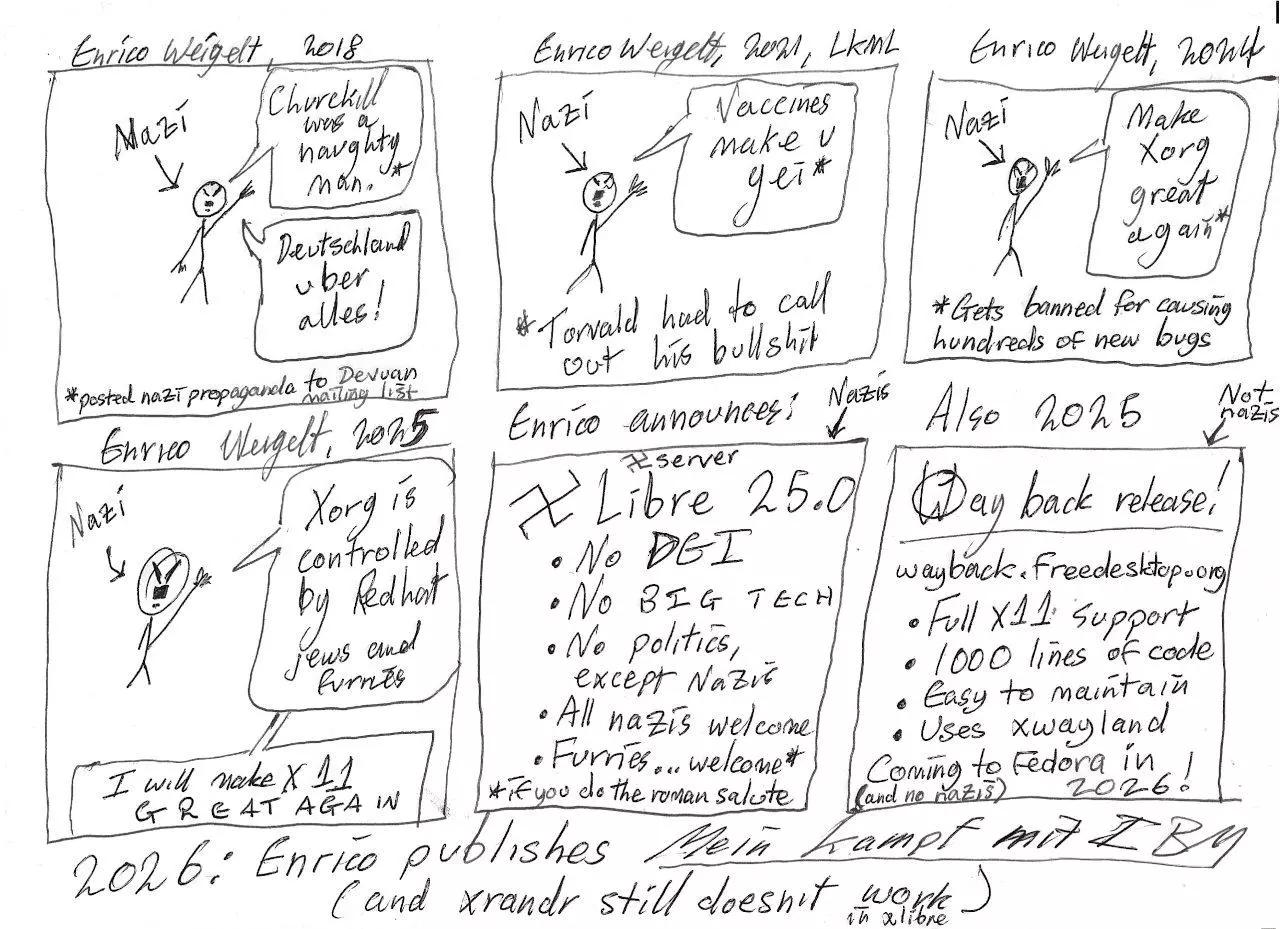 Enrico Weigelt, 2018
Nazi
Churchill
was a
naughty
man.*
Deutschland
uber
alles!
*posted nazi propaganda to Devuan
mailing list
Enrico Weigelt, 2021, LKML
Nazi
Vaccines
make u
gei*
*Torvald had to call
out his bullshit
Enrico Weigelt, 2024
Nazi
Make
Xorg
great
again*
*Gets banned for causing
hundreds of new bugs
Enrico Weigelt, 2025
Nazi
Xorg is
controlled
by Redhat
jews and
furries
I will make X11
GREAT AGAIN
Enrico announces:
Nazis
卐 server
卐 Libre 25.0
• No DGI
• No BIG TECH
• No politics,
except Nazis
• All nazis welcome
• Furries...welcome*
*if you do the roman salute
Also 2025
Not
nazis
Wayback release!
wayback.freedesktop.org
• Full X11 support
• 1000 lines of code
• Easy to maintain
• Uses xwayland
Coming to Fedora in
(and no nazis) 2026!
2026: Enrico publishes Mein Kampf mit IBM
(and xrandr still doesn't work)
in xlibre